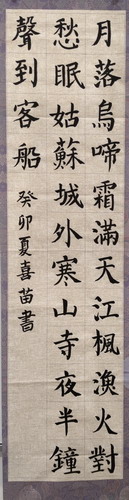 月落烏啼霜滿天江楓漁火對
愁眠姑蘇城外寒山寺夜半鐘
聲到客船
癸卯夏喜苗書